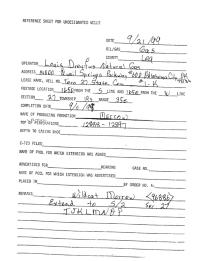 REFERENCE SHEET FOR UNDESIGNATED WELLS
DATE 9/21/99
OIL/GAS Gas
COUNTY Lea
OPERATOR Louis Dreyfus Natural Gas
ADDRESS 14000 Quail Springs Parkway #600 Oklahoma City, OK
LEASE NAME, WELL NO. Tern 27 State Com. #1-K
FOOTAGE LOCATION 1650 FROM THE S LINE AND 1650 FROM THE W LINE
SECTION 27 TOWNSHIP RGE 35e
COMPLETION DATE
NAME OF PRODUCING FORMATION Morrow
TOP OF PERFORATIONS
DEPTH TO CASING SHOE
C-123 FILED
NAME OF POOL FOR WHICH EXTENSION WAS ASKED
ADVERTISED FOR HEARING CASE NO.
NAME OF POOL FOR WHICH EXTENSION WAS ADVERTISED
PLACED IN BY ORDER NO. R-
REMARKS Wildcat Morrow
Extend to S/2 Sec 27
IJKLMNOP